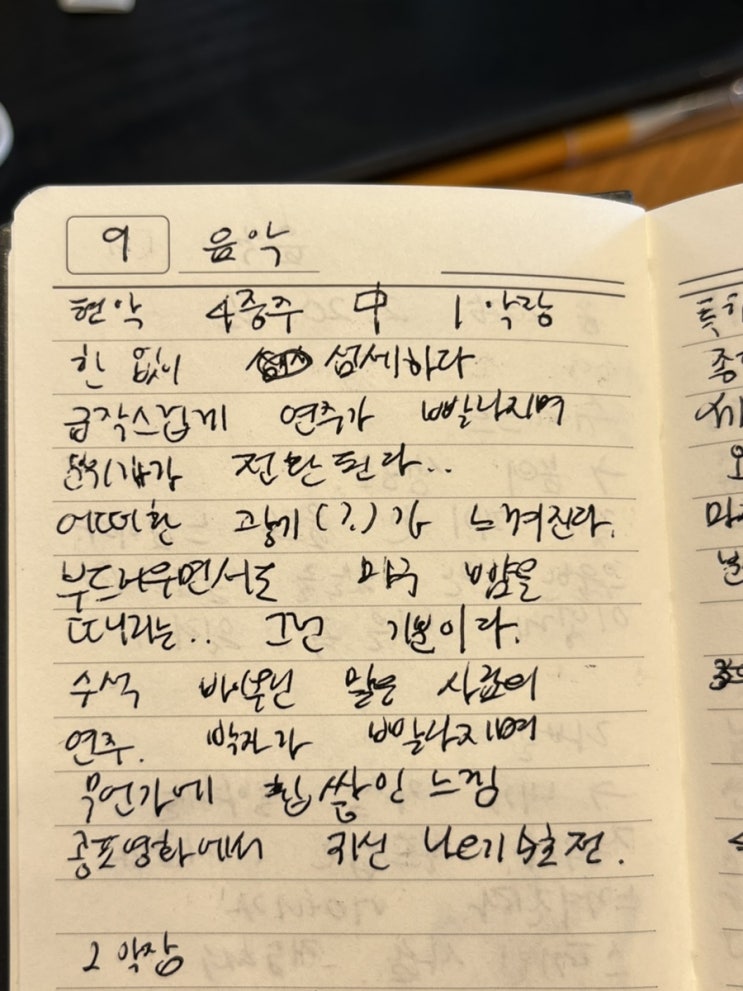 9 음악
현악 4중주 中 1악장
한 없이 섬세하다
급작스럽게 연주가 빨라지며
분위기가 전환된다..
어떠한 광기(?)가 느껴진다.
부드러우면서도 마구 뺨을
때리는.. 그런 기분이다.
수석 바이올린 맡은 사람의
연주. 박자가 빨라지며
무언가에 휩쌓인 느낌
공포영화에서 귀신 나오기 5초 전.
2 악장